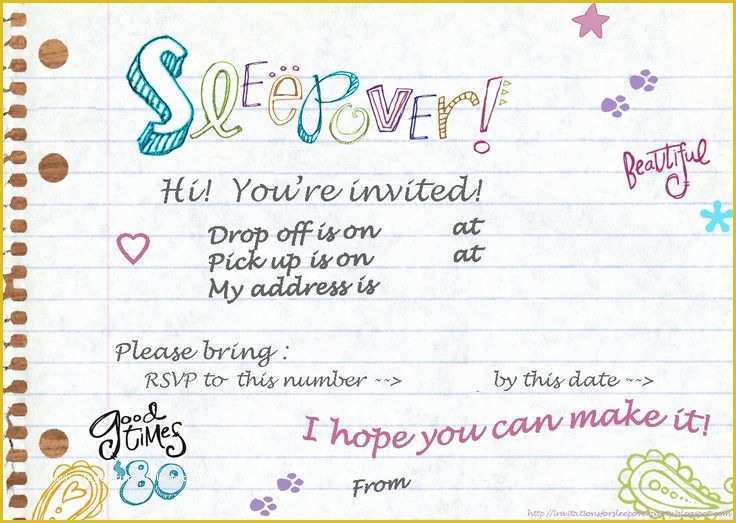 SLEEPOVER!
Beautiful
Hi! You're invited!
Drop off is on at
Pick up is on at
My address is
Please bring :
RSVP to this number ~~> by this date ~~>
good times
'89
I hope you can make it!
From